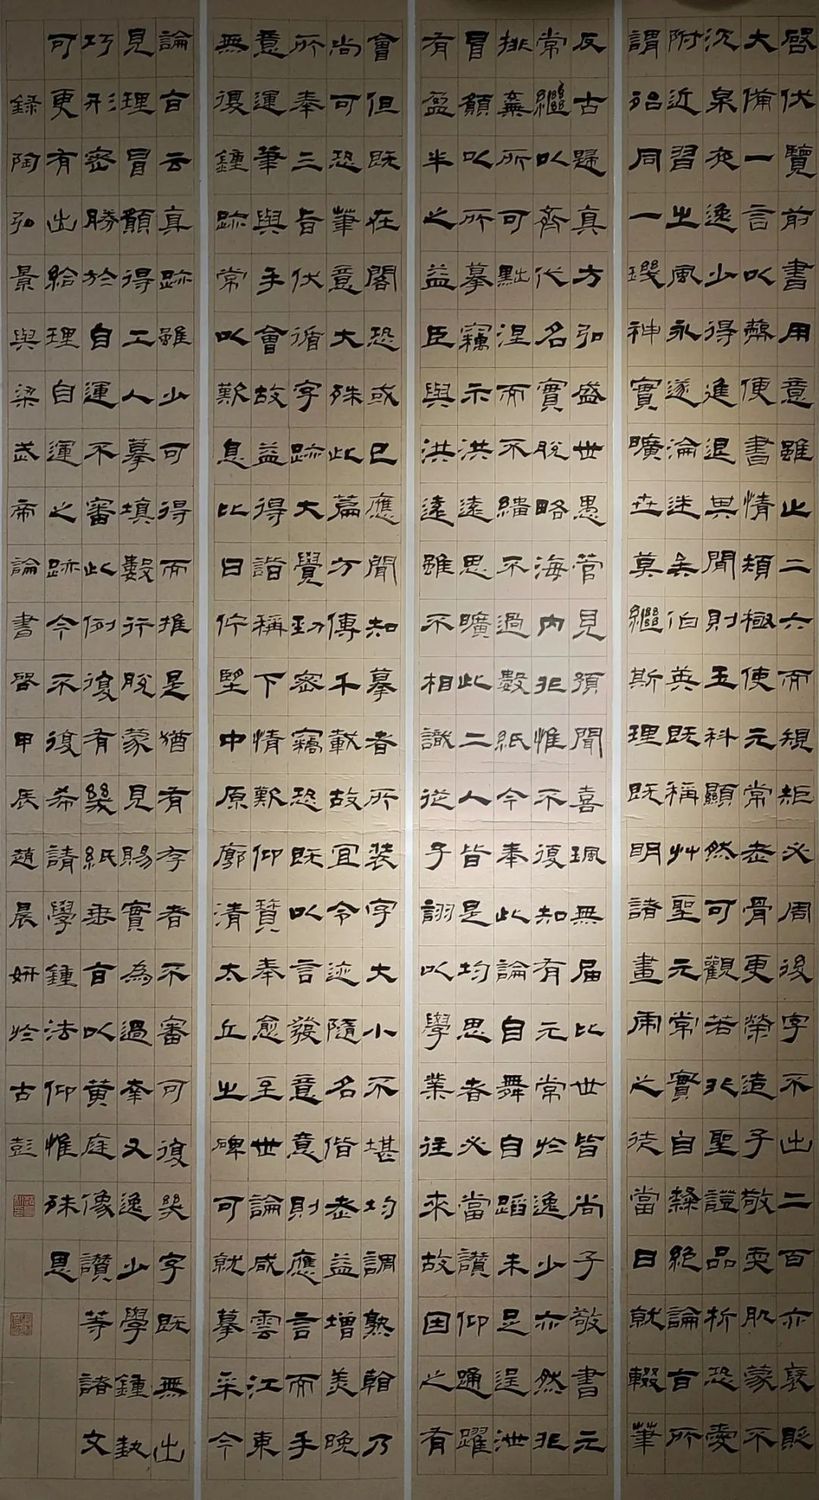 啓伏覽前書用意雖止二六而規矩必周後字不出二百亦褒貶
大備一言以蔽便書情頰極使元常老骨更榮造子敬耎肌蒙不
沉泉夜逸少得進退其閒則玉科顯然可觀若非聖證品析恐愛
附近習之風永遂淪迷矣伯英既稱艸聖元常實自隸絕論旨所
謂殆同一璣神實曠世莫繼斯理既明諸畫虎之徒當日就輟筆
反古歸真方弘盛世愚管見預聞喜珮無屆比世皆尚子敬書元
常繼以齊代名實脫略海內非惟不復知有元常於逸少亦然非
排棄所可黜涅而不緇不過數紙今奉此論自舞自蹈未足逞泄
冒願以所摹竊示洪遠思曠此二人皆是均思者必當讚仰踊躍
有盈半之益臣與洪遠雖不相識從子詡以學業往來故因之有
會但既在閣恐或已應聞知摹者所裝字大小不堪均調熟翰乃
尚可恐筆意大殊此篇方傳千載故宜令迹隨名偕老益增美晚
所奉三旨伏循字跡大覺勁密竊恐既以言發意意則應言而手
意運筆與手會故益得諧稱下情歎仰贊奉愈至世論咸雲江東
無復鍾跡常以歎息比日佇望中原廓清太丘之碑可就摹采今
論旨云真跡雖少可得而推是猶有存者不審可復幾字既無出
見理冒願得工人摹填數行脫蒙見賜實為過奉又逸少學鍾埶
巧形密勝於自運不審此例復有幾紙垂旨以黃庭像讚等諸文
可更有出給理自運之跡今不復希請學鍾法仰惟殊恩
錄陶弘景與梁武帝論書啓甲辰趙晨妍於古彭